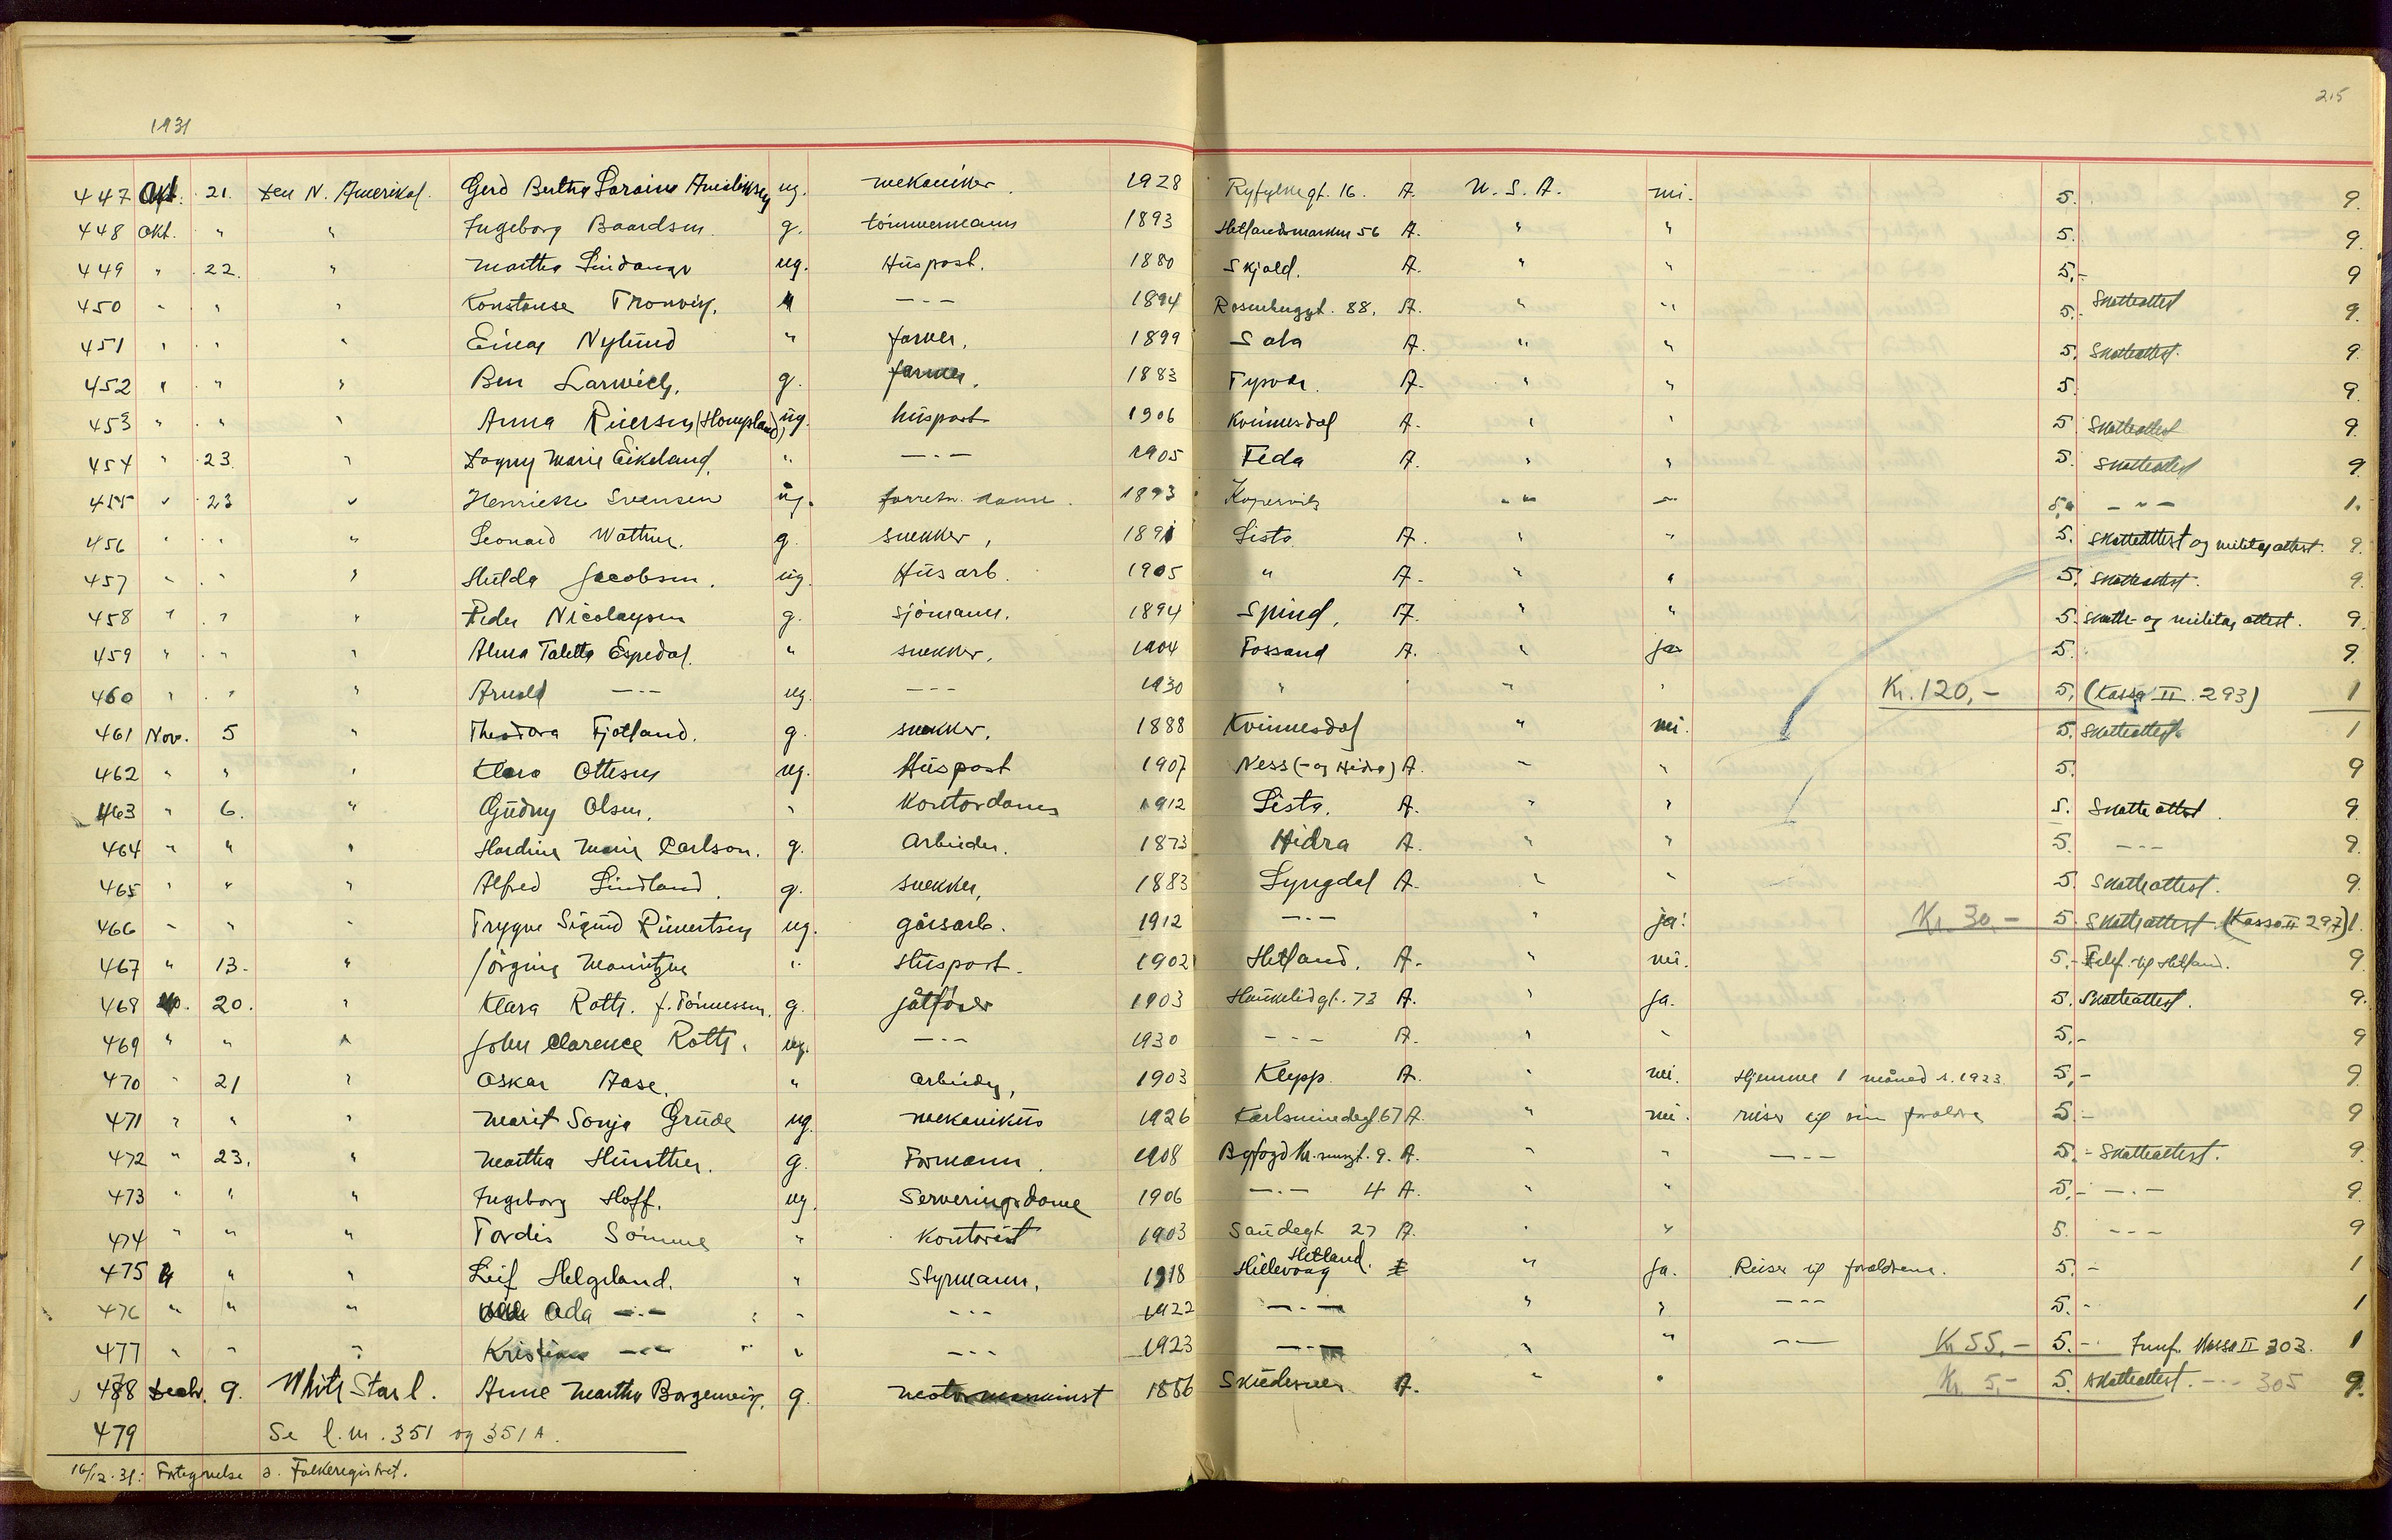 1931 215
447 Okt. 21. Den N. Amerikal. Gerd Bertha Loraine ug. mekaniker. 1928 Ryfylkegt. 16. A. U.S.A. nei. 5. 9.
448 Okt. " " Ingeborg Baardsen. g. tömmermann 1893 Hetlandsmarken 56 A. " " 5. 9.
449 " 22. " Martha Lindanger ug. Huspost. 1880 Skjold. A. " " 5,- 9
450 " " " Konstanse Tronvig. " — - — 1894 Rosenberggt. 88. A. " " 5.- Skatteattest 9.
451 " " " Einar Nylund " farmer. 1899 Sola A. " " 5. Skatteattest. 9.
452 " " " Ben Larwick. g. farmer. 1883 Tysvær. A. " " 5. 9.
453 " " " Anna Reiersen (Hompland) ug. huspost 1906 Kvinnesdal A. " " 5 Skatteattest 9.
454 " 23. " Dagny Marie Eikeland. " — - — 1905 Feda A. " " 5. Skatteattest 9.
455 " 23 " Henrikke Svensen ug. forretn. dame. 1893 Kopervik " " — 5,- — " — 1.
456 " " " Leonard Wattne. g. snekker, 1891 Lista A. " " 5. Skatteattest og militærattest. 9.
457 " " " Hulda Jacobsen. ug. Husarb. 1905 " A. " " 5. Skatteattest. 9.
458 " " " Peder Nicolaysen g. sjömann. 1894 Spind. A. " " 5. Skatte- og militær attest. 9.
459 " " " Alma Taletta Espedal. " snekker. 1904 Fossand A. " ja 5. 9.
460 " " " Arnold — - — ug. — - — 1930 " " " Kr. 120,- 5, (Kassa II. 293) 1
461 Nov. 5 " Theodora Fjotland. g. snekker. 1888 Kvinnesdal " nei. 5. Skatteattest. 1
462 " " " Klara Ottesen ug. Huspost 1907 Ness (- og Hidra) A. " " 5. 9
463 " 6. " Gudny Olsen. " Kontordame 1912 Lista. A. " " 5. Skatteattest. 9.
464 " " " Hardine Marie Carlson. g. Arbeider. 1873 Hidra A. " " 5. — - — 9.
465 " " " Alfred Lindland. g. snekker, 1883 Lyngdal A. " " 5. Skatteattest. 9.
466 " " " Trygve Sigurd Reinertsen ug. gårsarb. 1912 — - — " ja! Kr. 30,- 5. Skatteattest. (Kassa II 297) 1.
467 " 13. " Jörgine Mauritzen " Huspost. 1902 Hetland. A. " nei. 5.- Telef. til Hetland. 9
468 20. " Klara Rotts. f. Tönnessen. g. 1903 Haukelidgt. 73 A. " Ja. 5. Skatteattest. 9.
469 " " " John Clarence Rotts. ug. — - — 1930 — - — A. " " 5.- 9
470 " 21 " Oskar Aase. " arbeider, 1903 Klepp. A. " nei. Hjemme 1 måned s. 1923. 5,- 9.
471 " " " Marit Sonja Grude ug. mekanikus 1926 Karlsminnegt 67 A. " nei. reiser til sin foreldre 5.- 9
472 " 23. " Martha g. Formann. 1908 Byfogd 9. A. " " — - — 5.- Skatteattest. 9.
473 " " " Ingeborg Hoff. ug. Serveringsdame 1906 — - — 4 A. " " 5.- — - — 9.
474 " " " Tordis Sömme " Kontorist 1903 Saudegt 27 A. " " 5. — - — 9
475 " " " Leif Helgeland. " Styrmann. 1918 Hillevaag Hetland. " Ja. Reiser til foreldrene. 5.- 1
476 " " " Ada — - — " — - — 1922 — - — " " — - — 5.- 1
477 " " " Kristian — - — " — - — 1923 — - — " " — - — Kr 55,- 5.- Innf. Kassa II 303. 1
478 Decbr. 9. White Star l. Anne Martha Borgenvig. g. motormaskinist 1886 Skudesnes A. " " Kr. 5,- 5. Skatteattest. — - — 305 9.
479 Se l. nr. 351 og 351 A.
16/12.31: Fortegnelse s. Folkeregistret.